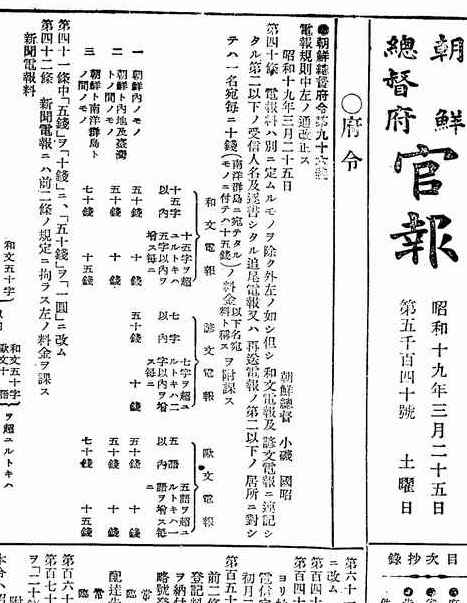 朝鮮
總督府
官報
昭和十九年三月二十五日
第五千百四十號 土曜日
目次抄錄
〇府令
●朝鮮總督府令第九十六號
電報規則中左ノ通改正ス
昭和十九年三月二十五日
朝鮮總督 小磯國昭
第四十條 電報料ハ別ニ定ムルモノヲ除ク外左ノ如シ但シ和文電報及諺文電報ニ連記シ
タル第二以下ノ受信人名及逐書シタル追尾電報又ハ再送電報ノ第二以下ノ居所ニ對シ
テハ一名宛每ニ十錢(南洋群島ニ宛テタルモノニ付テハ十五錢)ノ料金(以下名宛料ト稱ス)ヲ附課ス
和文電報 諺文電報 歐文電報
十五字以內 十五字ヲ超ユルトキハ五字以內ヲ增ス每ニ 七字以內 七字ヲ超ユルトキハ二字以內ヲ增ス每ニ 五語以內 五語ヲ超ユルトキハ一語ヲ增ス每ニ
一 朝鮮內ノモノ 五十錢 十錢 五十錢 十錢 五十錢 十錢
二 朝鮮ト內地及臺灣トノ間ノモノ 五十錢 十錢 五十錢 十錢
三 朝鮮ト南洋群島トノ間ノモノ 七十錢 十五錢 七十錢 十五錢
第四十一條中「五錢」ヲ「十錢」ニ、「五十錢」ヲ「一圓」ニ改ム
第四十二條 新聞電報ニハ前二條ノ規定ニ拘ラス左ノ料金ヲ課ス
新聞電報料
和文五十字
和文五十字 歐文十語 ヲ超ユルトキハ
第六十一
ニ改ム
第百四十
第百四十
ヨリ
電信
初月
第百五十
登記料
前二
ヲ納付
略號登
常
配達先
臨
常
第百六十
第百七十
ヲ「二十